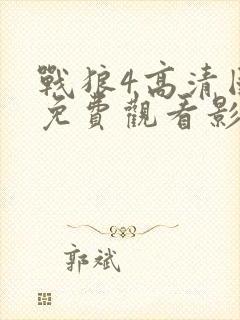 戰狼4高清
免費觀看影
郭斌